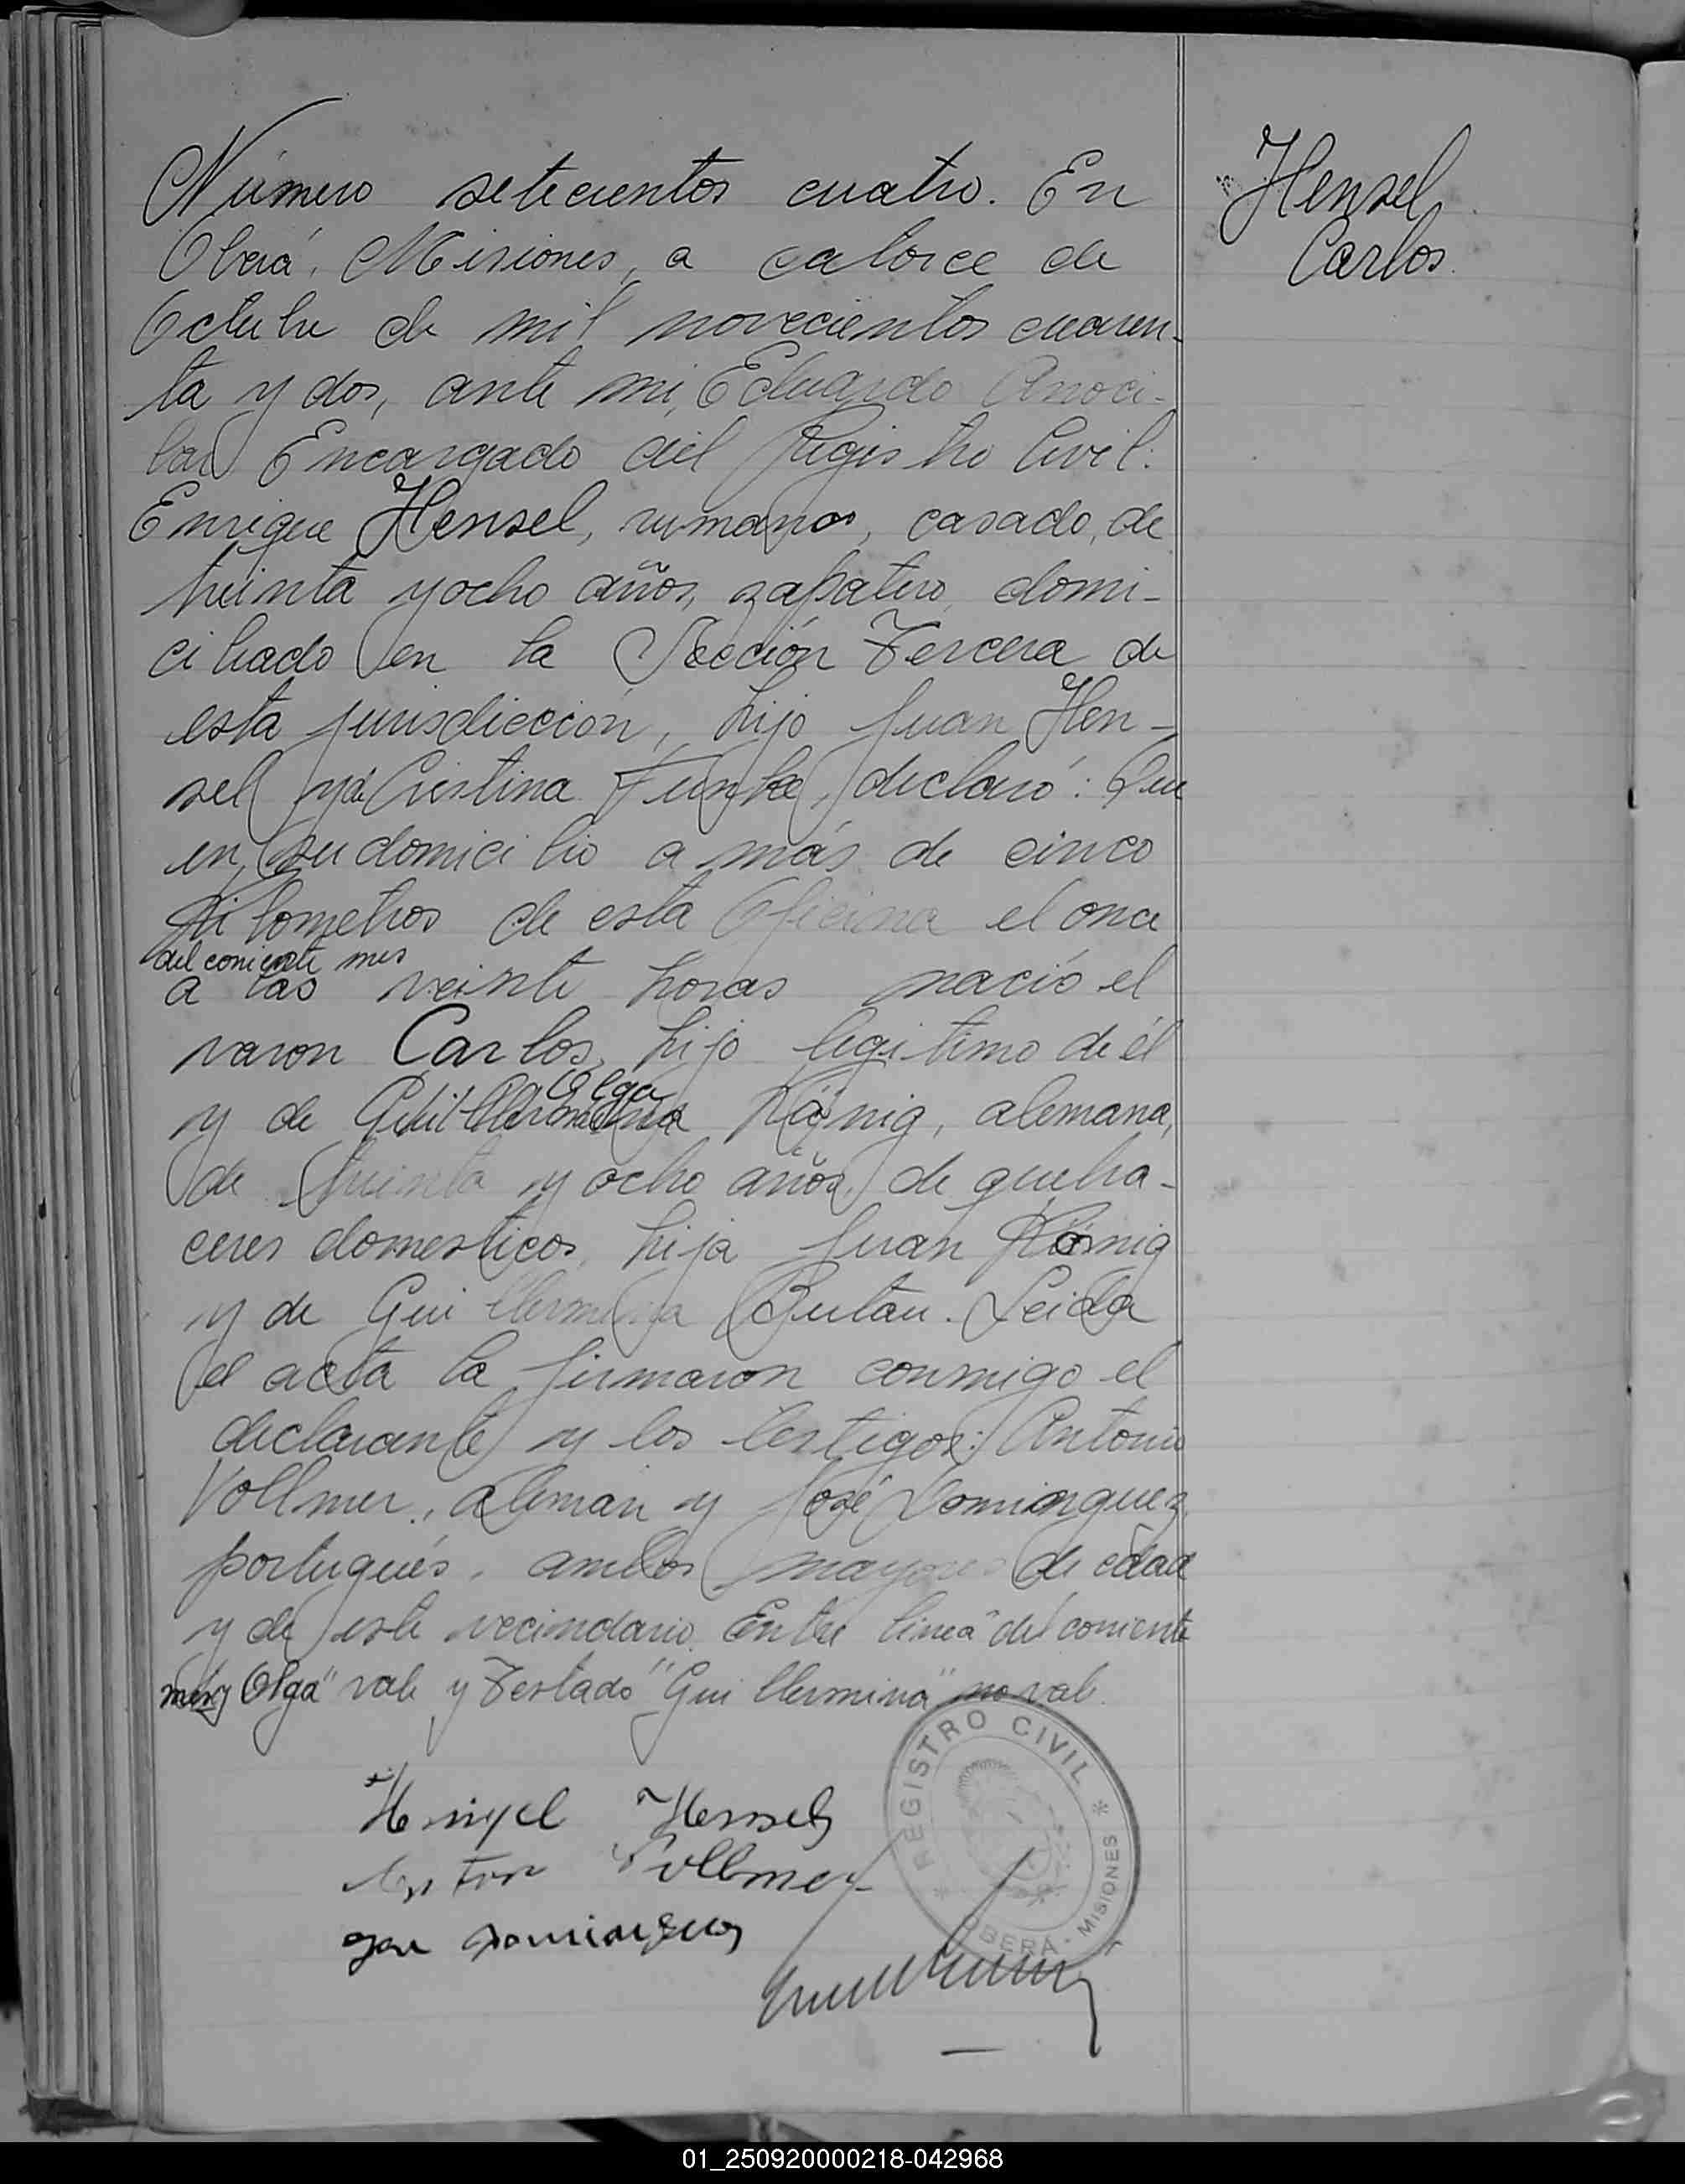 Número setecientos cuatro. En
Oberá, Misiones, a catorce de
Octubre de mil novecientos cuaren-
ta y dos, ante mi, Eduardo Anoci-
bar Encargado del Registro Civil:
Enrique Hensel, rumano, casado, de
treinta y ocho años, zapatero, domi-
ciliado en la Sección Tercera de
esta jurisdicción, hijo Juan Hen-
sel y de Cristina Funke, declaró: Que
en su domicilio a más de cinco
kilometros de esta Oficina el once
del corriente mes
a las veinte horas nació el
varon Carlos, hijo legitimo de él
Olga
y de Guillermina König, alemana,
de treinta y ocho años, de queha-
ceres domesticos, hija Juan König
y de Guillermina Butau. Leida
el acta la firmaron conmigo el
declarante y los testigos: Antonio
Vollmer, aleman y José Dominguez
portugués, ambos mayores de edad
y de este vecindario. Entre linea "del corriente
mes y Olga" vale y Testado "Guillermina" no vale.
Hensel
Vollmer
Hensel
Carlos
REGISTRO CIVIL
OBERÁ - MISIONES
01_250920000218-042968